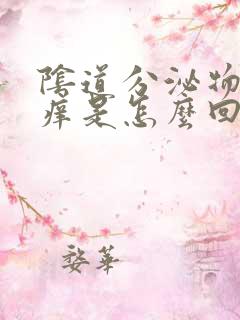 陰道分泌物
痒是怎麼回
婺華